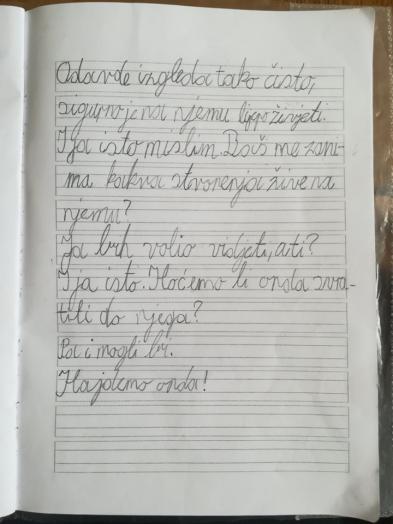 Odavde izgleda tako čisto,
sigurno je na njemu lijepo živjeti.
I ja isto mislim. Baš me zani-
ma kakva stvorenja žive na
njemu?
Ja bih volio vidjeti, a ti?
I ja isto. Hoćemo li onda svra-
titi do njega?
Pa i mogli bi.
Hajdemo onda!